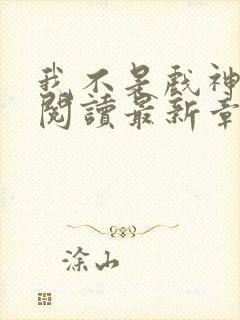 我不是戲神
閱讀最新章
涂山